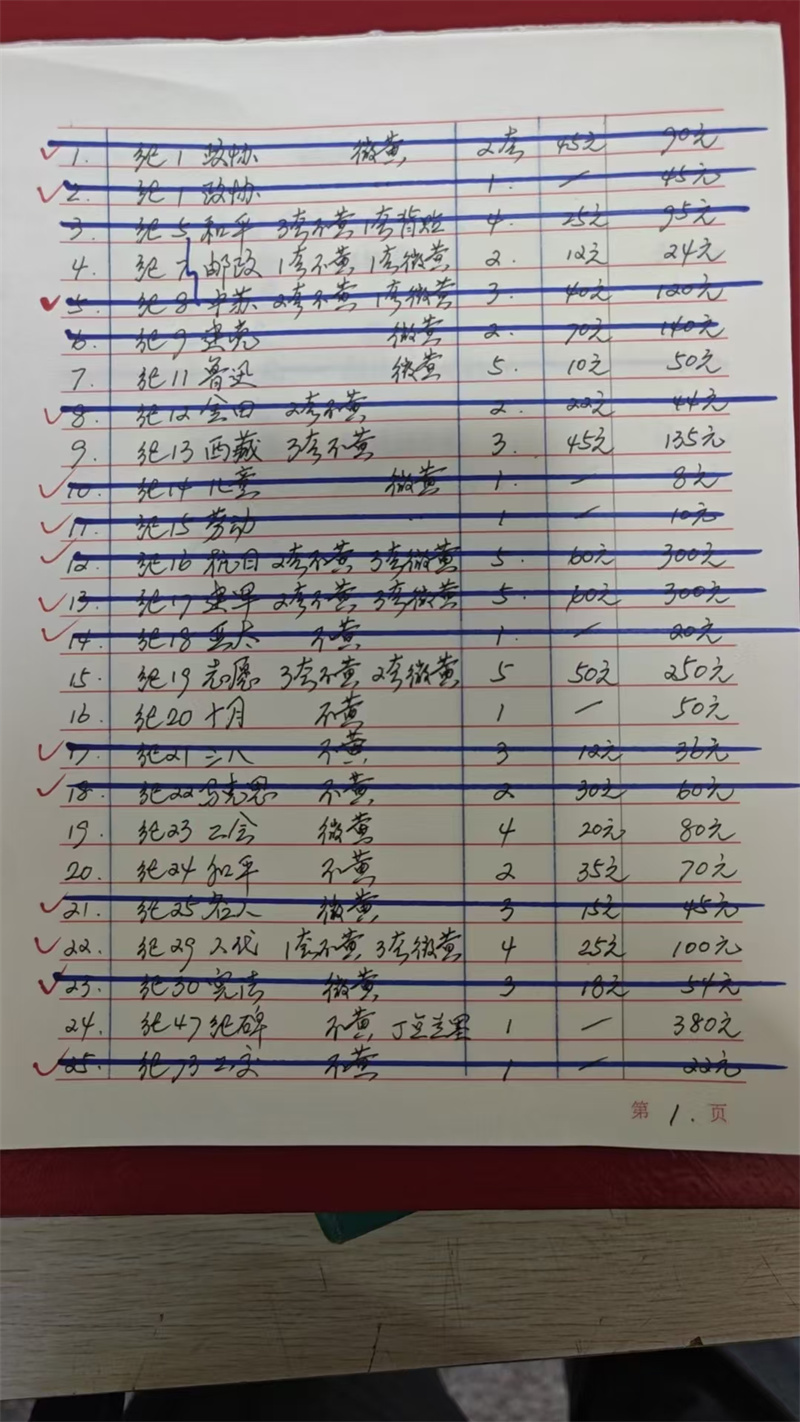 1. 纪1 政协 微黄 2套 45元 90元
2. 纪1 政协 1. — 45元
3. 纪5 和平 3套不黄 1套背 4. 25元 95元
4. 纪 邮政 1套不黄 1套微黄 2. 12元 24元
5. 纪8 中苏 2套不黄 1套微黄 3. 40元 120元
6. 纪9 微黄 2. 70元 140元
7. 纪11 鲁迅 微黄 5. 10元 50元
8. 纪12 金田 2套不黄 2. 22元 44元
9. 纪13 西藏 3套不黄 3. 45元 135元
10. 纪14 儿童 微黄 1. — 8元
11. 纪15 劳动 1 — 10元
12. 纪16 抗日 2套不黄 3套微黄 5. 60元 300元
13. 纪17 建军 2套不黄 3套微黄 5. 60元 300元
14. 纪18 亚太 不黄 1. — 20元
15. 纪19 志愿 3套不黄 2套微黄 5 50元 250元
16. 纪20 十月 不黄 1 — 50元
17. 纪21 三八 不黄 3 12元 36元
18. 纪22 马克思 不黄 2 30元 60元
19. 纪23 工会 微黄 4 20元 80元
20. 纪24 和平 不黄 2 35元 70元
21. 纪25 名人 微黄 3 15元 45元
22. 纪29 人代 1套不黄 3套微黄 4 25元 100元
23. 纪30 宪法 微黄 3 18元 54元
24. 纪47 纪碑 不黄 1 — 380元
25. 纪73 工交 不黄 1 — 22元
第 1. 页